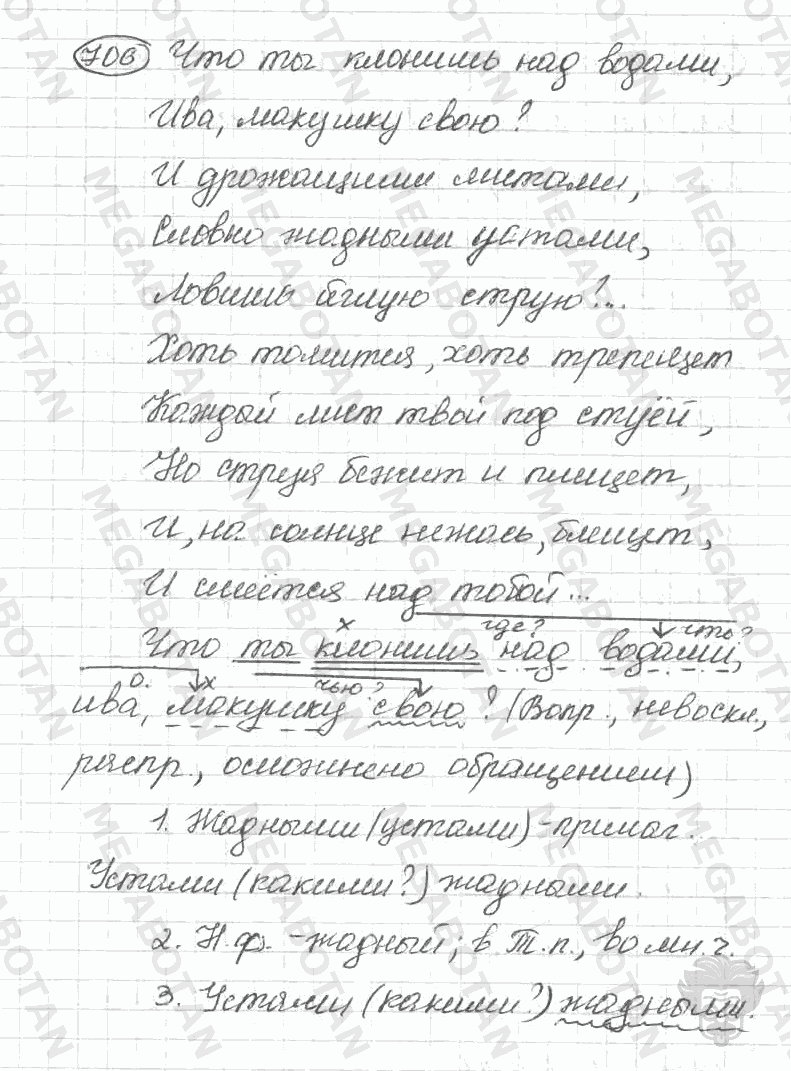 706 Что ты клонишь над водами,
Ива, макушку свою?
И дрожащими листами,
Словно жадными устами,
Ловишь беглую струю?..
Хоть томится, хоть трепещет
Каждый лист твой под стуёй,
Но струя бежит и плещет,
И, на солнце нежась, блещет,
И смеётся над тобой...
х где? что?
Что ты клонишь над водами,
О. х чью?
ива, макушку свою? (Вопр., невоскл.,
распр., осложнено обращением)
1. Жадными (устами) - прилаг.
Устами (какими?) жадными.
2. Н.ф. - жадный; в Т.п., во мн.ч.
3. Устами (какими?) жадными.
MEGABOTAN